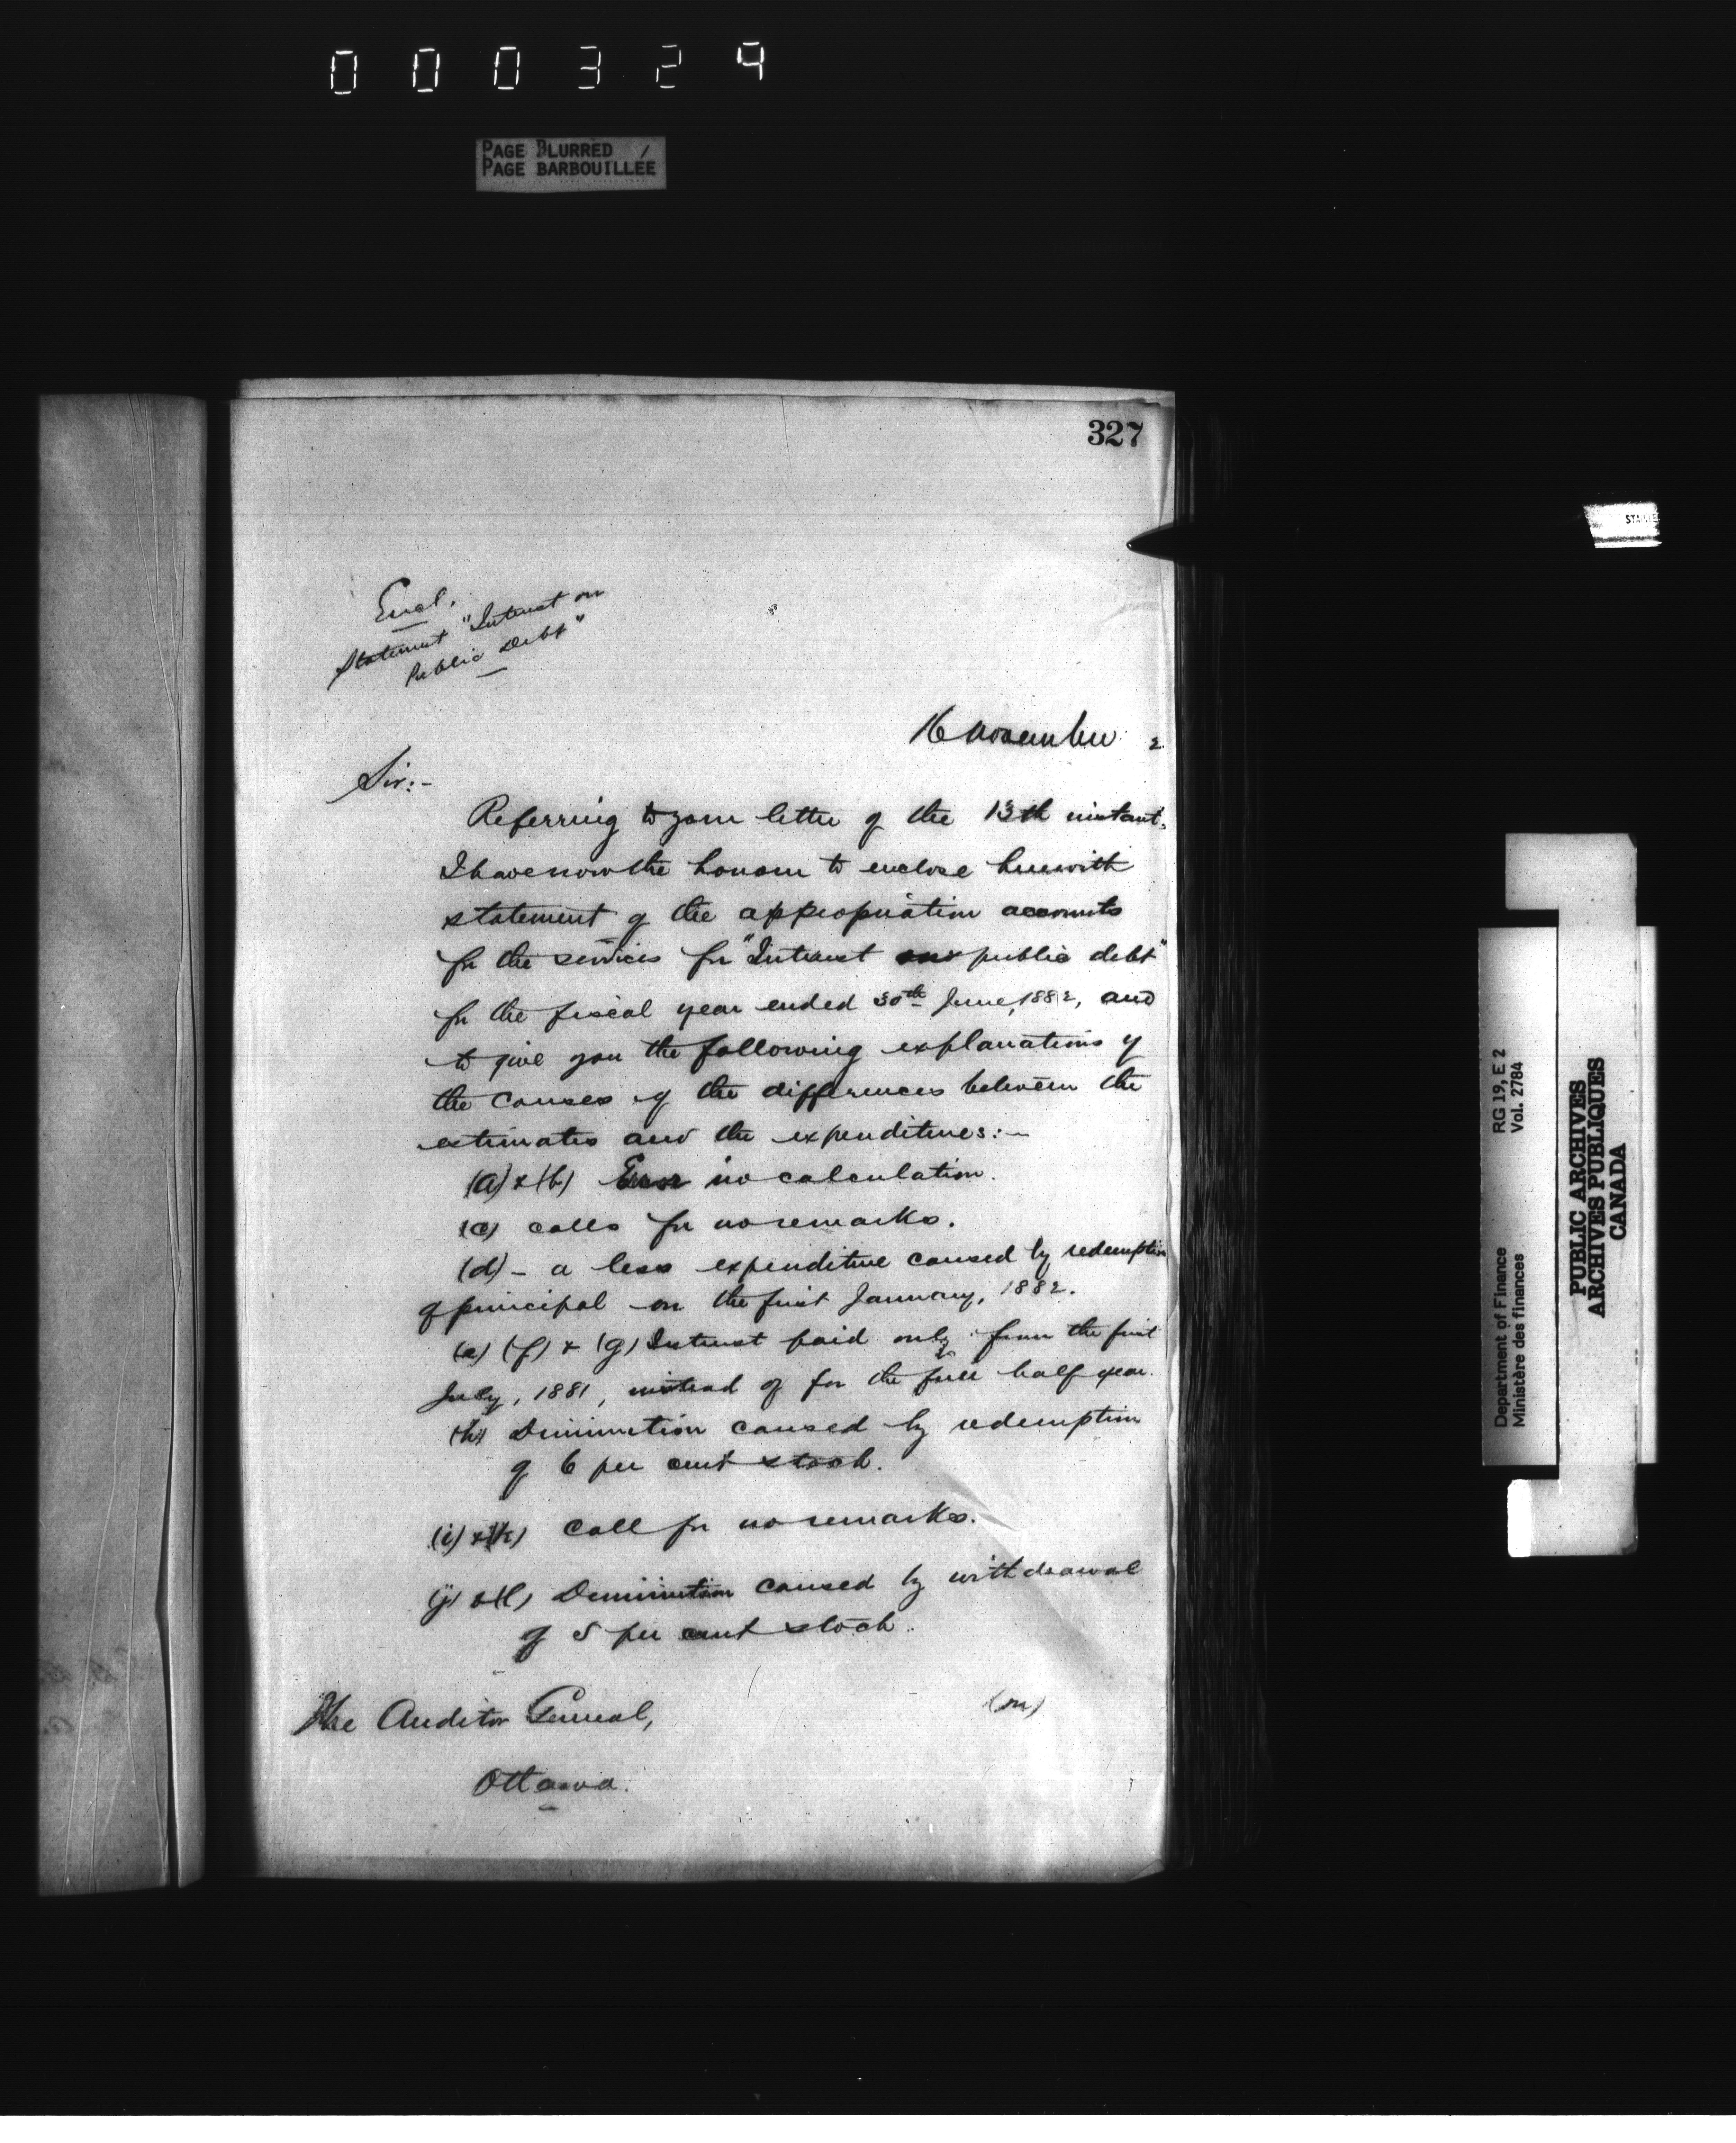 000324
PAGE BLURRED /
PAGE BARBOUILLÉE
327
Encl.
Statement "Interest on
Public Debt"
16 November 2
Sir:-
Referring to your letter of the 13th instant,
I have now the honour to enclose herewith
statement of the appropriation accounts
for the services for "Interest on public debt"
for the fiscal year ended 30th June, 1882, and
to give you the following explanations of
the causes of the differences between the
estimates and the expenditures:-
(a) & (b) Error in calculation.
(c) calls for no remarks.
(d) - a less expenditure caused by redemption
of principal on the first January, 1882.
(e) (f) & (g) Interest paid only from the first
July, 1881, instead of for the full half year.
(h) Diminution caused by redemption
of 6 per cent stock.
(i) & (k) Call for no remarks.
(j) & (l) Diminution caused by withdrawal
of 5 per cent stock.
(m)
The Auditor General,
Ottawa.
Department of Finance RG 19, E 2
Ministère des finances Vol. 2784
PUBLIC ARCHIVES
ARCHIVES PUBLIQUES
CANADA